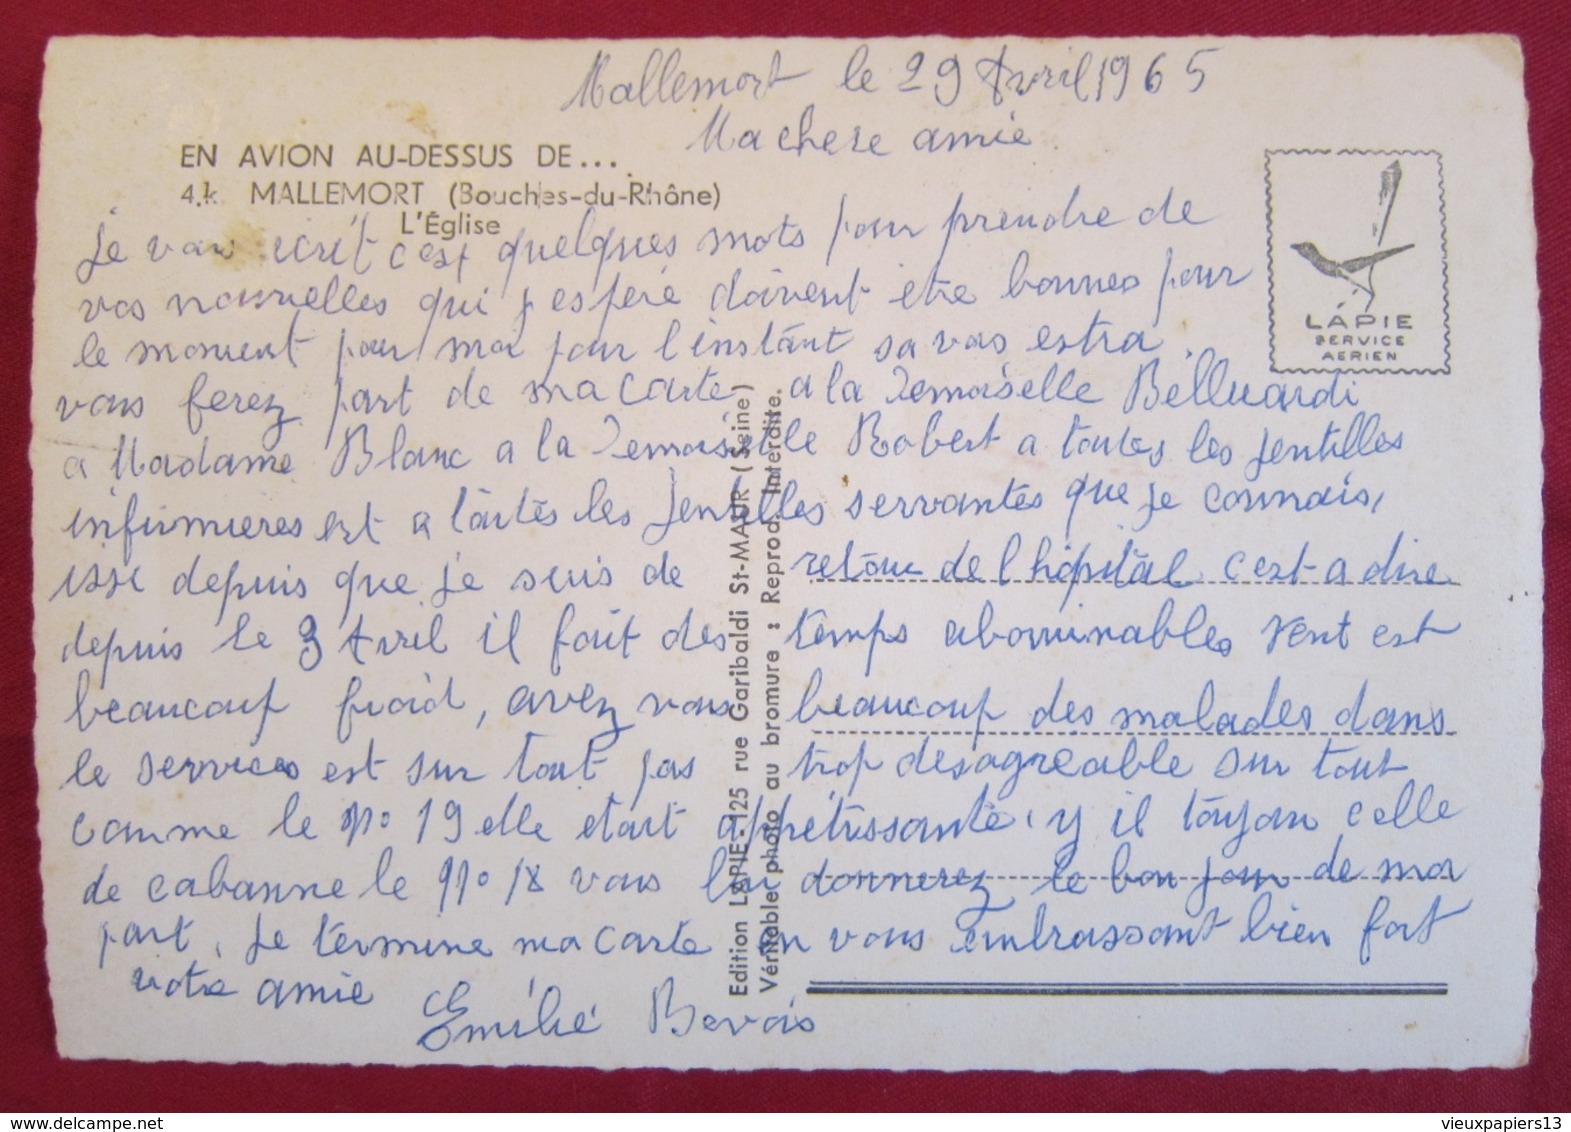 Mallemort le 29 Avril 1965
Ma chere amie
EN AVION AU-DESSUS DE...
4.k. MALLEMORT (Bouches-du-Rhône)
L'Église
je vous ecrit c'est quelques mots pour prendre de
vos nouvelles qui j'espere doivent etre bonnes pour
le moment pour moi pour l'instant sa vas estra
vous ferez part de ma carte a la Demoiselle Belluardi
a Madame Blanc a la Demoiselle Robert a toutes les jentilles
infirmieres est a toutes les jentilles servantes que je connais,
issi depuis que je suis de retour de l hopital c'est-a dire
depuis le 3 Avril il fait des temps abominables vent est
beaucoup froid, avez vous beaucoup des malades dans
le services est sur tout pas trop desagreable sur tout
comme le n° 19 elle etait appetissante, y il toujour celle
de cabanne le n° 18 vous lui donnerez le bon jour de ma
part, je termine ma carte en vous embrassant bien fort
votre amie
Emilie Bevois
LAPIE
SERVICE
AERIEN
Edition LAPIE - 125 rue Garibaldi St-MAUR (Seine)
Véritable photo au bromure : Reprod. Interdite.
vieuxpapiers13